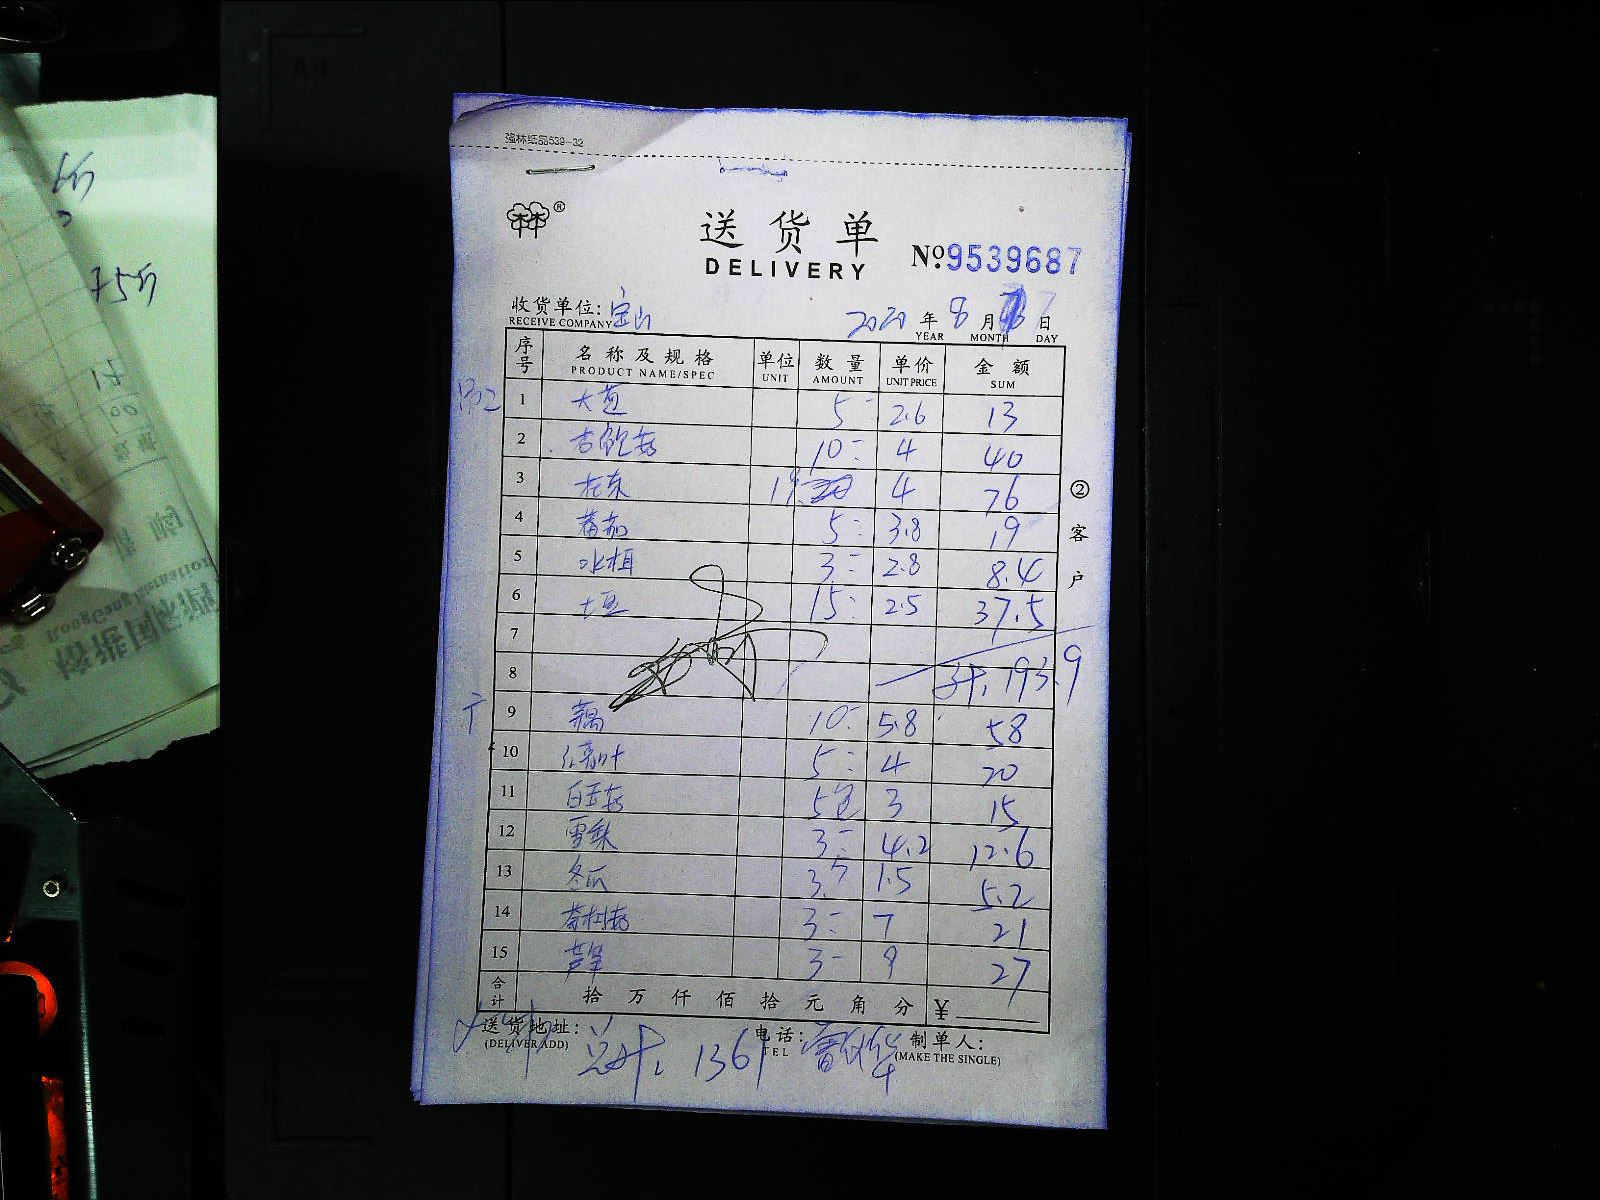 强林纸品539-32
送货单
DELIVERY
№9539687
收货单位: 宝山
RECEIVE COMPANY
2020 年 8 月 日
YEAR MONTH DAY
序号 名称及规格 单位 数量 单价 金额
PRODUCT NAME/SPEC UNIT AMOUNT UNIT PRICE SUM
1 大葱 5- 2.6 13
2 杏鲍菇 10- 4 40
3 19 4 76
4 蕃茄 5- 3.8 19
5 3- 2.8 8.4
6 土豆 15- 2.5 37.5
7
8 计: 193.9
9 藕 10- 5.8 58
10 5- 4 20
11 白玉菇 5包 3 15
12 雪梨 3- 4.2 12.6
13 冬瓜 3.5 1.5 5.2
14 茶树菇 3- 7 21
15 芦笋 3- 9 27
合计 拾 万 仟 佰 拾 元 角 分 ¥
送货地址: 电话: 制单人:
(DELIVER ADD) TEL (MAKE THE SINGLE)
总计: 1361
②客户